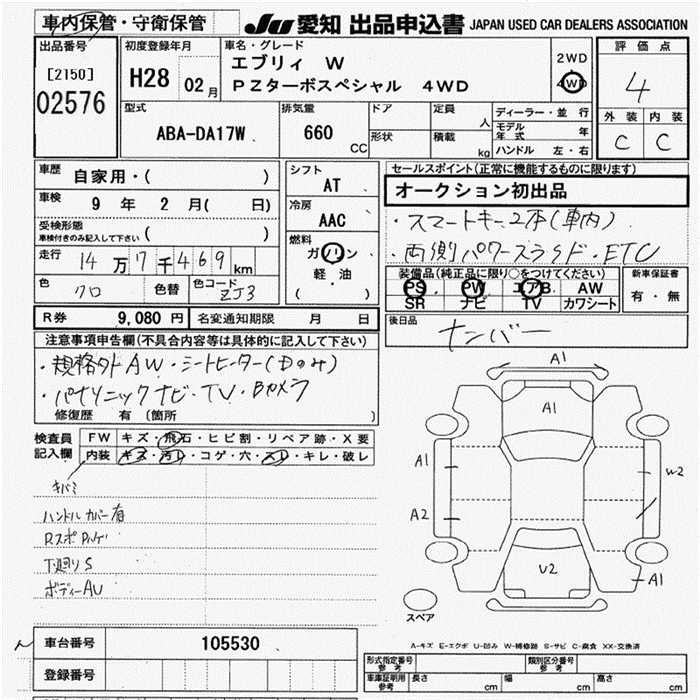 車内保管・守衛保管
JU 愛知 出品申込書 JAPAN USED CAR DEALERS ASSOCIATION
出品番号
[2150]
02576
初度登録年月
H28 02月
車名・グレード
エブリィ W
PZターボスペシャル 4WD
2WD
4WD
評価点
4
外装 内装
C C
型式
ABA-DA17W
排気量
660
CC
ドア
形状
定員
人
積載
kg
ディーラー・並行
モデル年式 年
ハンドル 左・右
車歴
自家用・( )
車検
9 年 2 月( 日)
受検形態
車検付きのみ記入して下さい ( )
走行
14万7千469km
色
クロ
色替
色コード
ZJ3
シフト
AT
冷房
AAC
燃料
ガソリン
軽・油
( )
セールスポイント(正常に機能するものに限ります)
オークション初出品
・スマートキー2本(車内)
・両側パワースライド・ETC
装備品(純正品に限り○をつけてください)
PS PW エアB. AW
SR ナビ TV カワシート
新車保証書
有・無
R券 9,080 円 名変通知期限 月 日
後日品
ナンバー
注意事項申告欄(不具合内容等は具体的に記入して下さい)
・規格外AW・シートヒーター(Dのみ)
・パナソニックナビ・TV・Bカメラ
修復歴 有 (箇所 )
検査員記入欄
FW キズ・飛石・ヒビ割・リペア跡・X要
内装 キズ・汚レ・コゲ・穴・スレ・キレ・破レ
キバミ
ハンドルカバー有
下廻りS
ボディーAU
A1
A1
A1
W2
A2
U2
A1
スペア
A-キズ E-エクボ U-凹み W-補修跡 S-サビ C-腐食 XX-交換済
車台番号 105530
登録番号
形式指定番号 参考
類別区分番号 参考
車庫証明用 参考 長さ cm 幅 cm 高さ cm